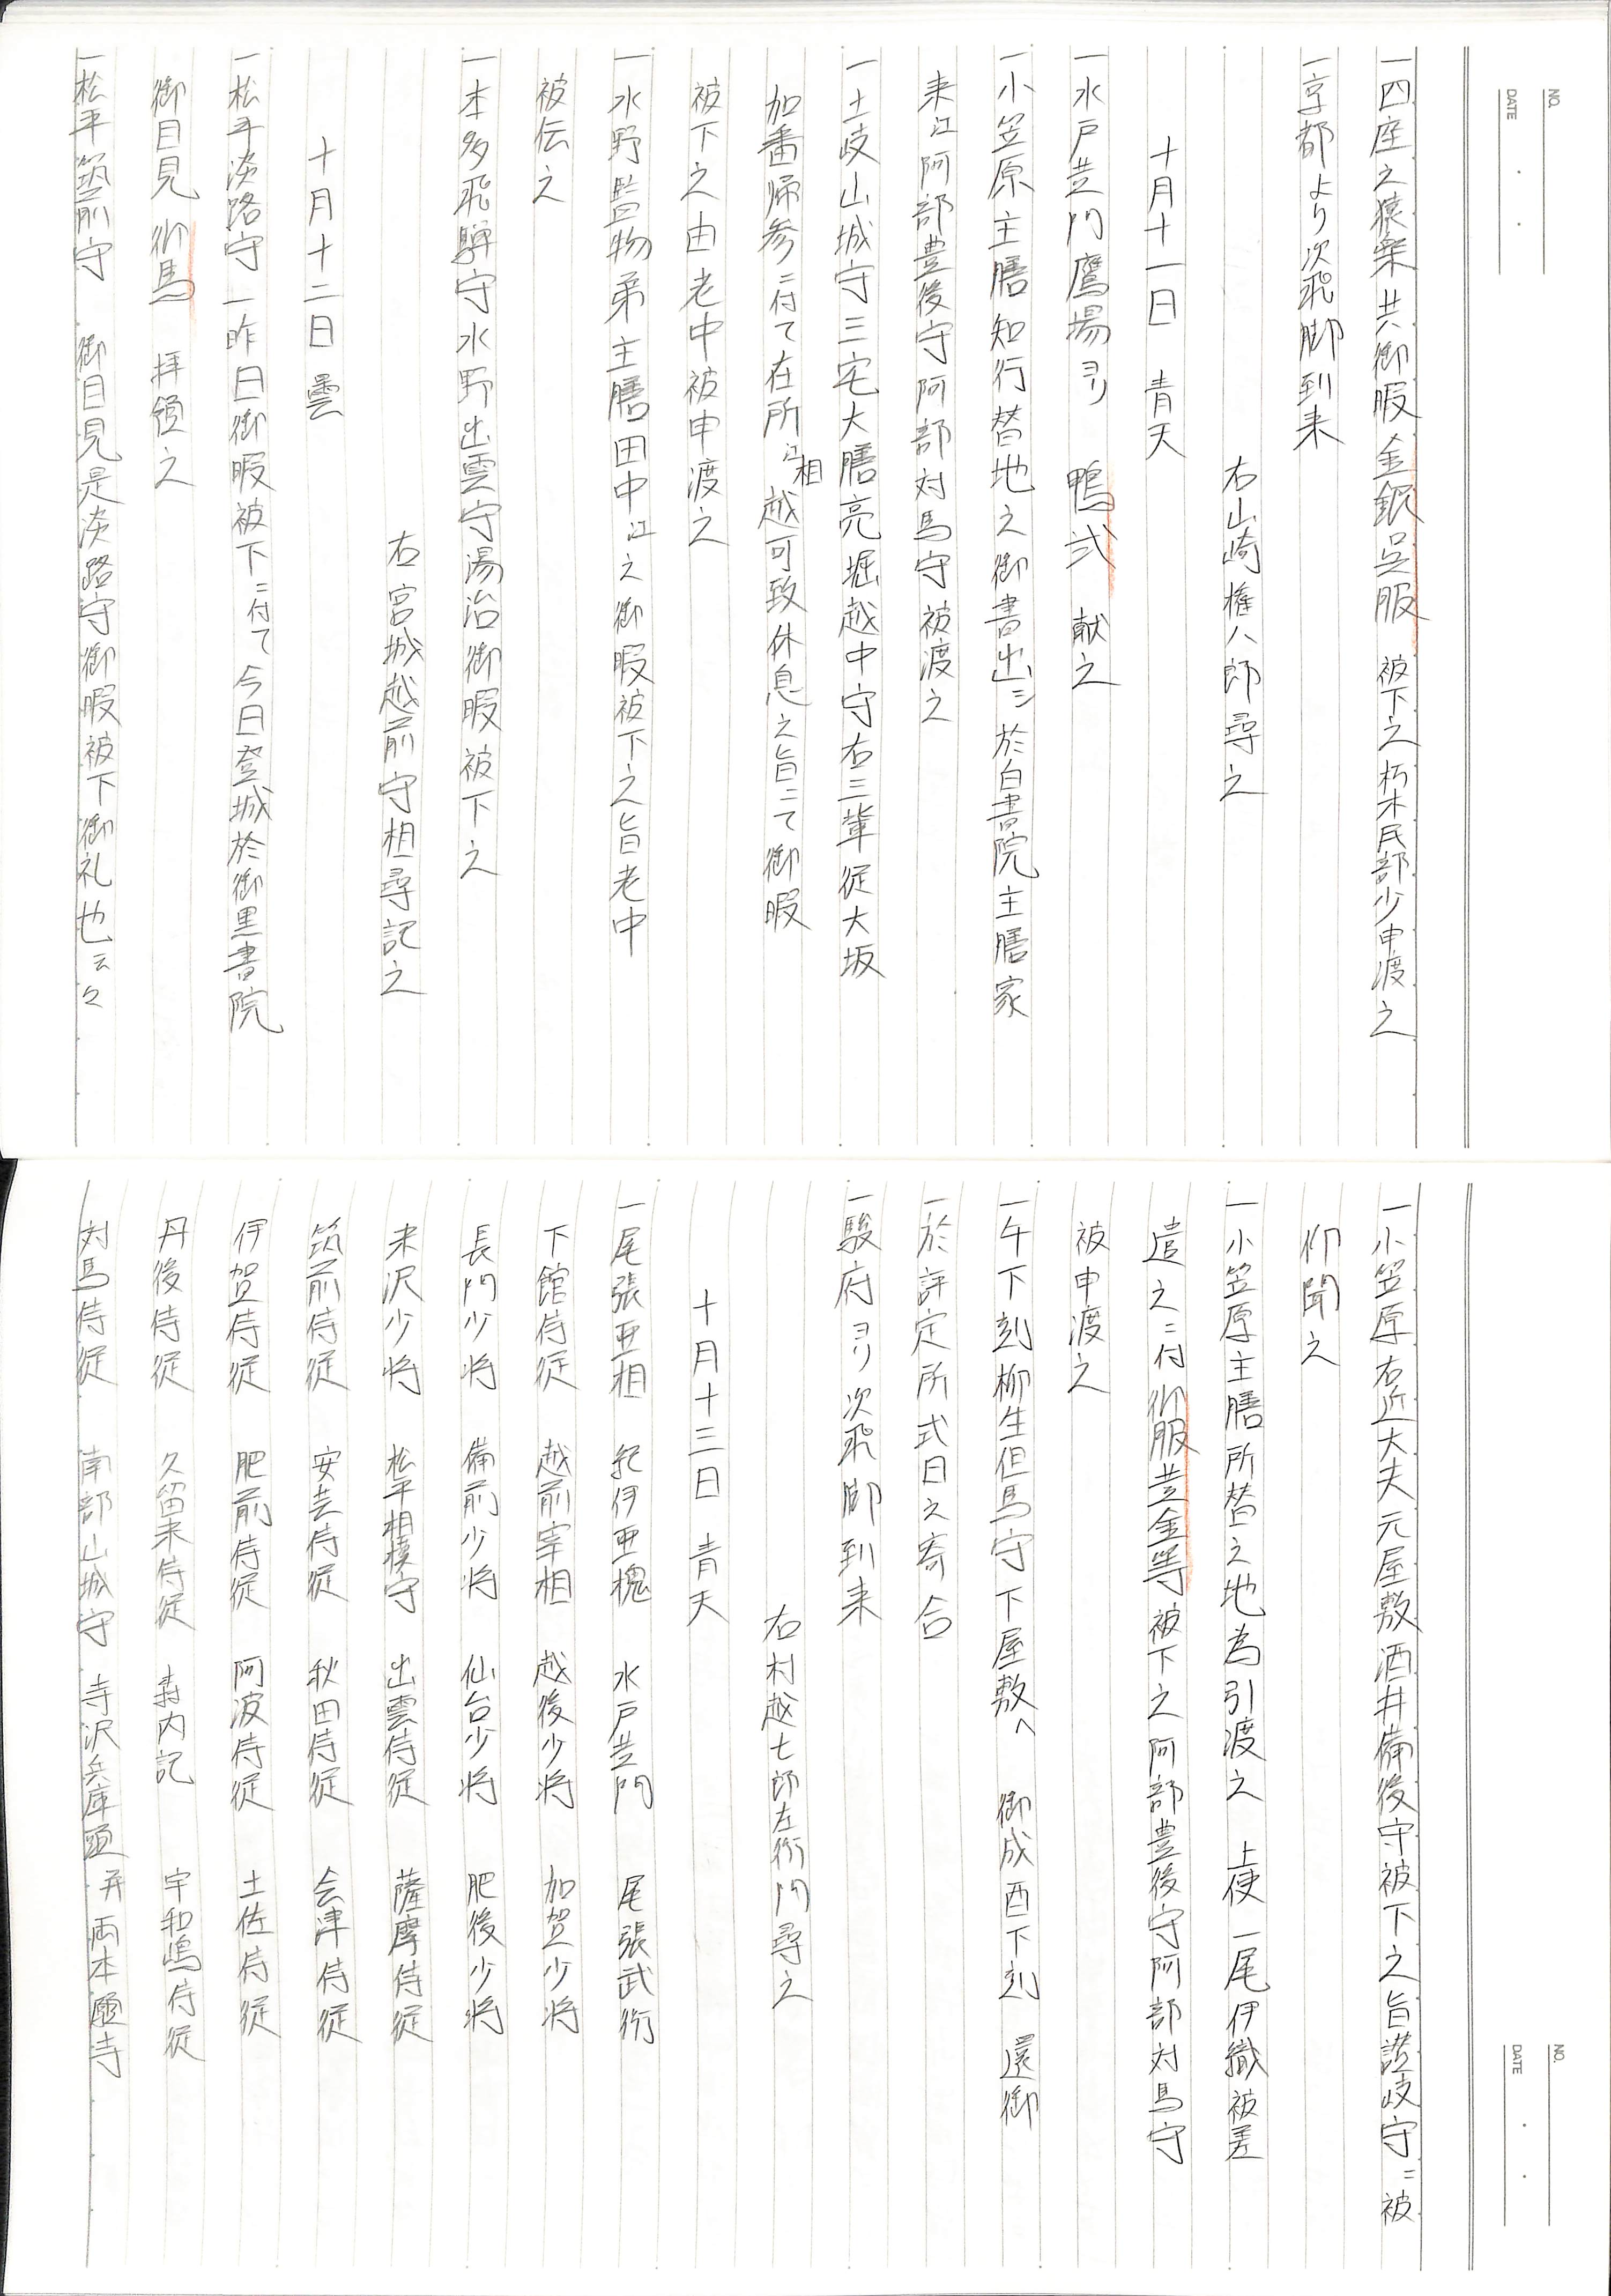 NO.
DATE
一四座之猿楽共御暇金銀呉服 被下之朽木民部少申渡之
一京都より次飛脚到来
右山崎権八郎尋之
十月十一日 青天
一水戸黄門鷹場ヨリ 鴨弐 献之
一小笠原主膳知行替地之御書出シ於白書院主膳家
来江阿部豊後守阿部対馬守被渡之
一土岐山城守三宅大膳亮堀越中守右三輩従大坂
加番帰参ニ付て在所江相越可致休息之旨ニて御暇
被下之由老中被申渡之
一水野監物弟主膳田中江之御暇被下之旨老中
被伝之
一本多飛騨守水野出雲守湯治御暇被下之
右宮城越前守相尋記之
十月十二日 曇
一松平淡路守一昨日御暇被下ニ付て今日登城於御黒書院
御目見 御馬 拝領之
一松平筑前守 御目見是淡路守御暇被下御礼也云々
NO.
DATE
一小笠原右近大夫元屋敷酒井備後守被下之旨讃岐守ニ被
仰聞之
一小笠原主膳所替之地為引渡之 上使一尾伊織被差
遣之ニ付御服并金等被下之阿部豊後守阿部対馬守
被申渡之
一午下刻柳生但馬守下屋敷へ 御成酉下刻 還御
一於評定所式日之寄合
一駿府ヨリ次飛脚到来
右村越七郎左衛門尋之
十月十三日 青天
一尾張亜相 紀伊亜槐 水戸黄門 尾張武衛
下館侍従 越前宰相 越後少将 加賀少将
長門少将 備前少将 仙台少将 肥後少将
米沢少将 松平相模守 出雲侍従 薩摩侍従
筑前侍従 安芸侍従 秋田侍従 会津侍従
伊賀侍従 肥前侍従 阿波侍従 土佐侍従
丹後侍従 久留米侍従 森内記 宇和嶋侍従
対馬侍従 南部山城守 寺沢兵庫頭 并両本願寺